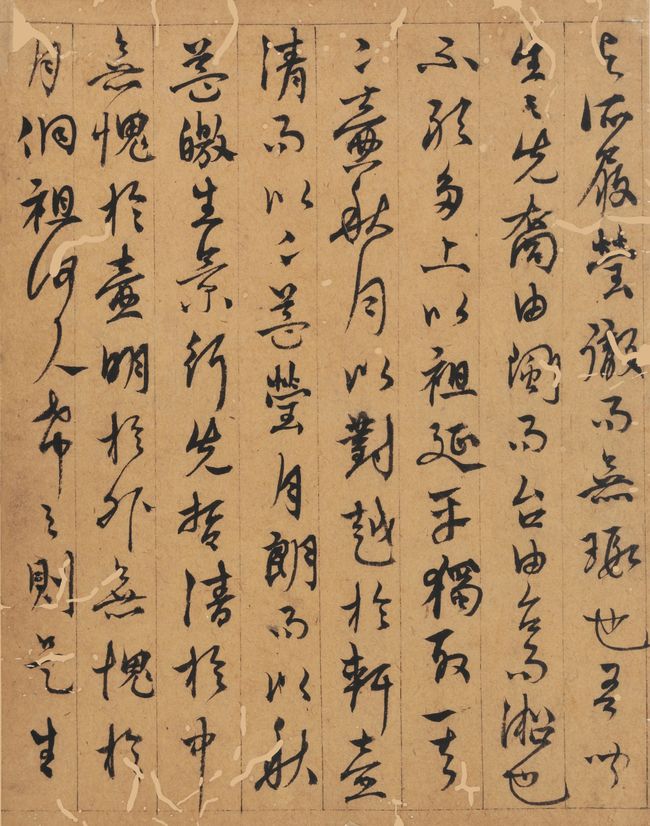 所履瑩徹而無瑕也吾聞
生之先裔由閩而台由台而淞也
不能多上以祖延平獨取
冰壺秋月以對越於軒壺
清而以冰益瑩月朗而以秋
益皦生景行先哲清於中
無愧於壺明於外無愧於
月侗祖何人希之則是生